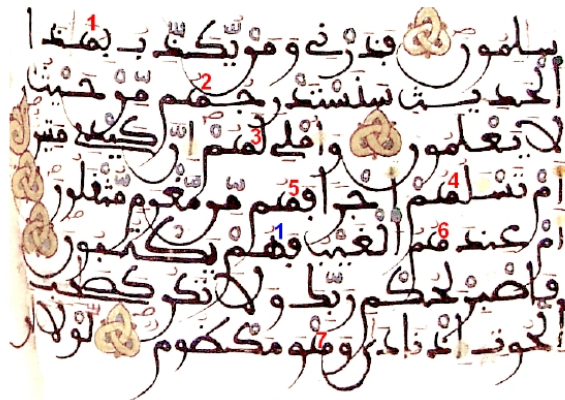 سلمون فذرني ومن يكذب ب 1 بهذا
الحديث سنستدرجهم 2 من حيث
لا يعلمون وأملي لهم 3 إن كيدي متين
أم تسلهم 4 أجرا فهم 5 من مغرم مثقلون
أم عندهم 6 الغيب فهم 1 يكتبون
فاصبر لحكم ربك ولا تكن كصحب
الحوت إذ نادى وهو 7 مكظوم لولا أن